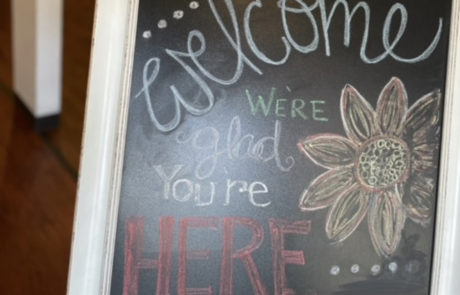 welcome
WE'RE
glad
You're
HERE